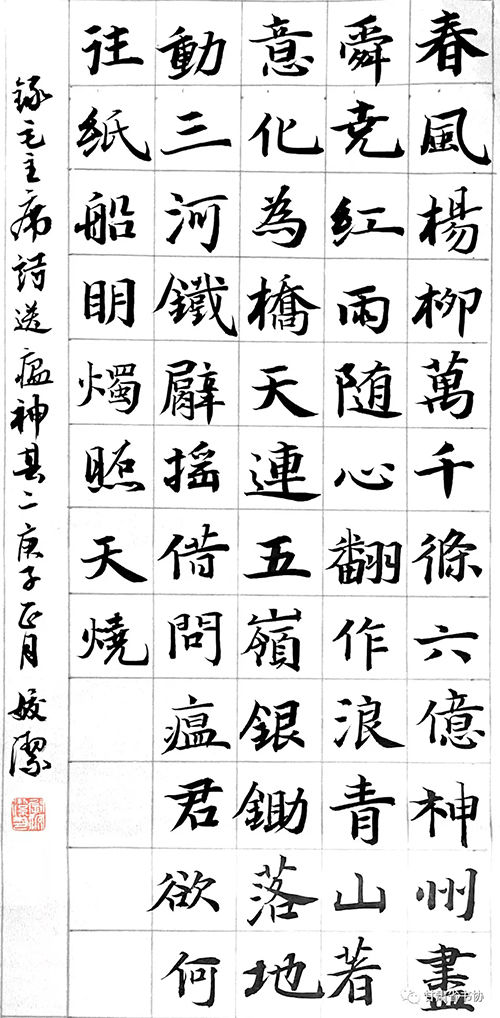 春風楊柳萬千條六億神州盡
舜尭紅雨随心翻作浪青山著
意化為橋天連五嶺銀鋤落地
動三河鐵臂摇借問瘟君欲何
往紙船眀燭照天燒
録毛主席詩送瘟神其二庚子正月 潔